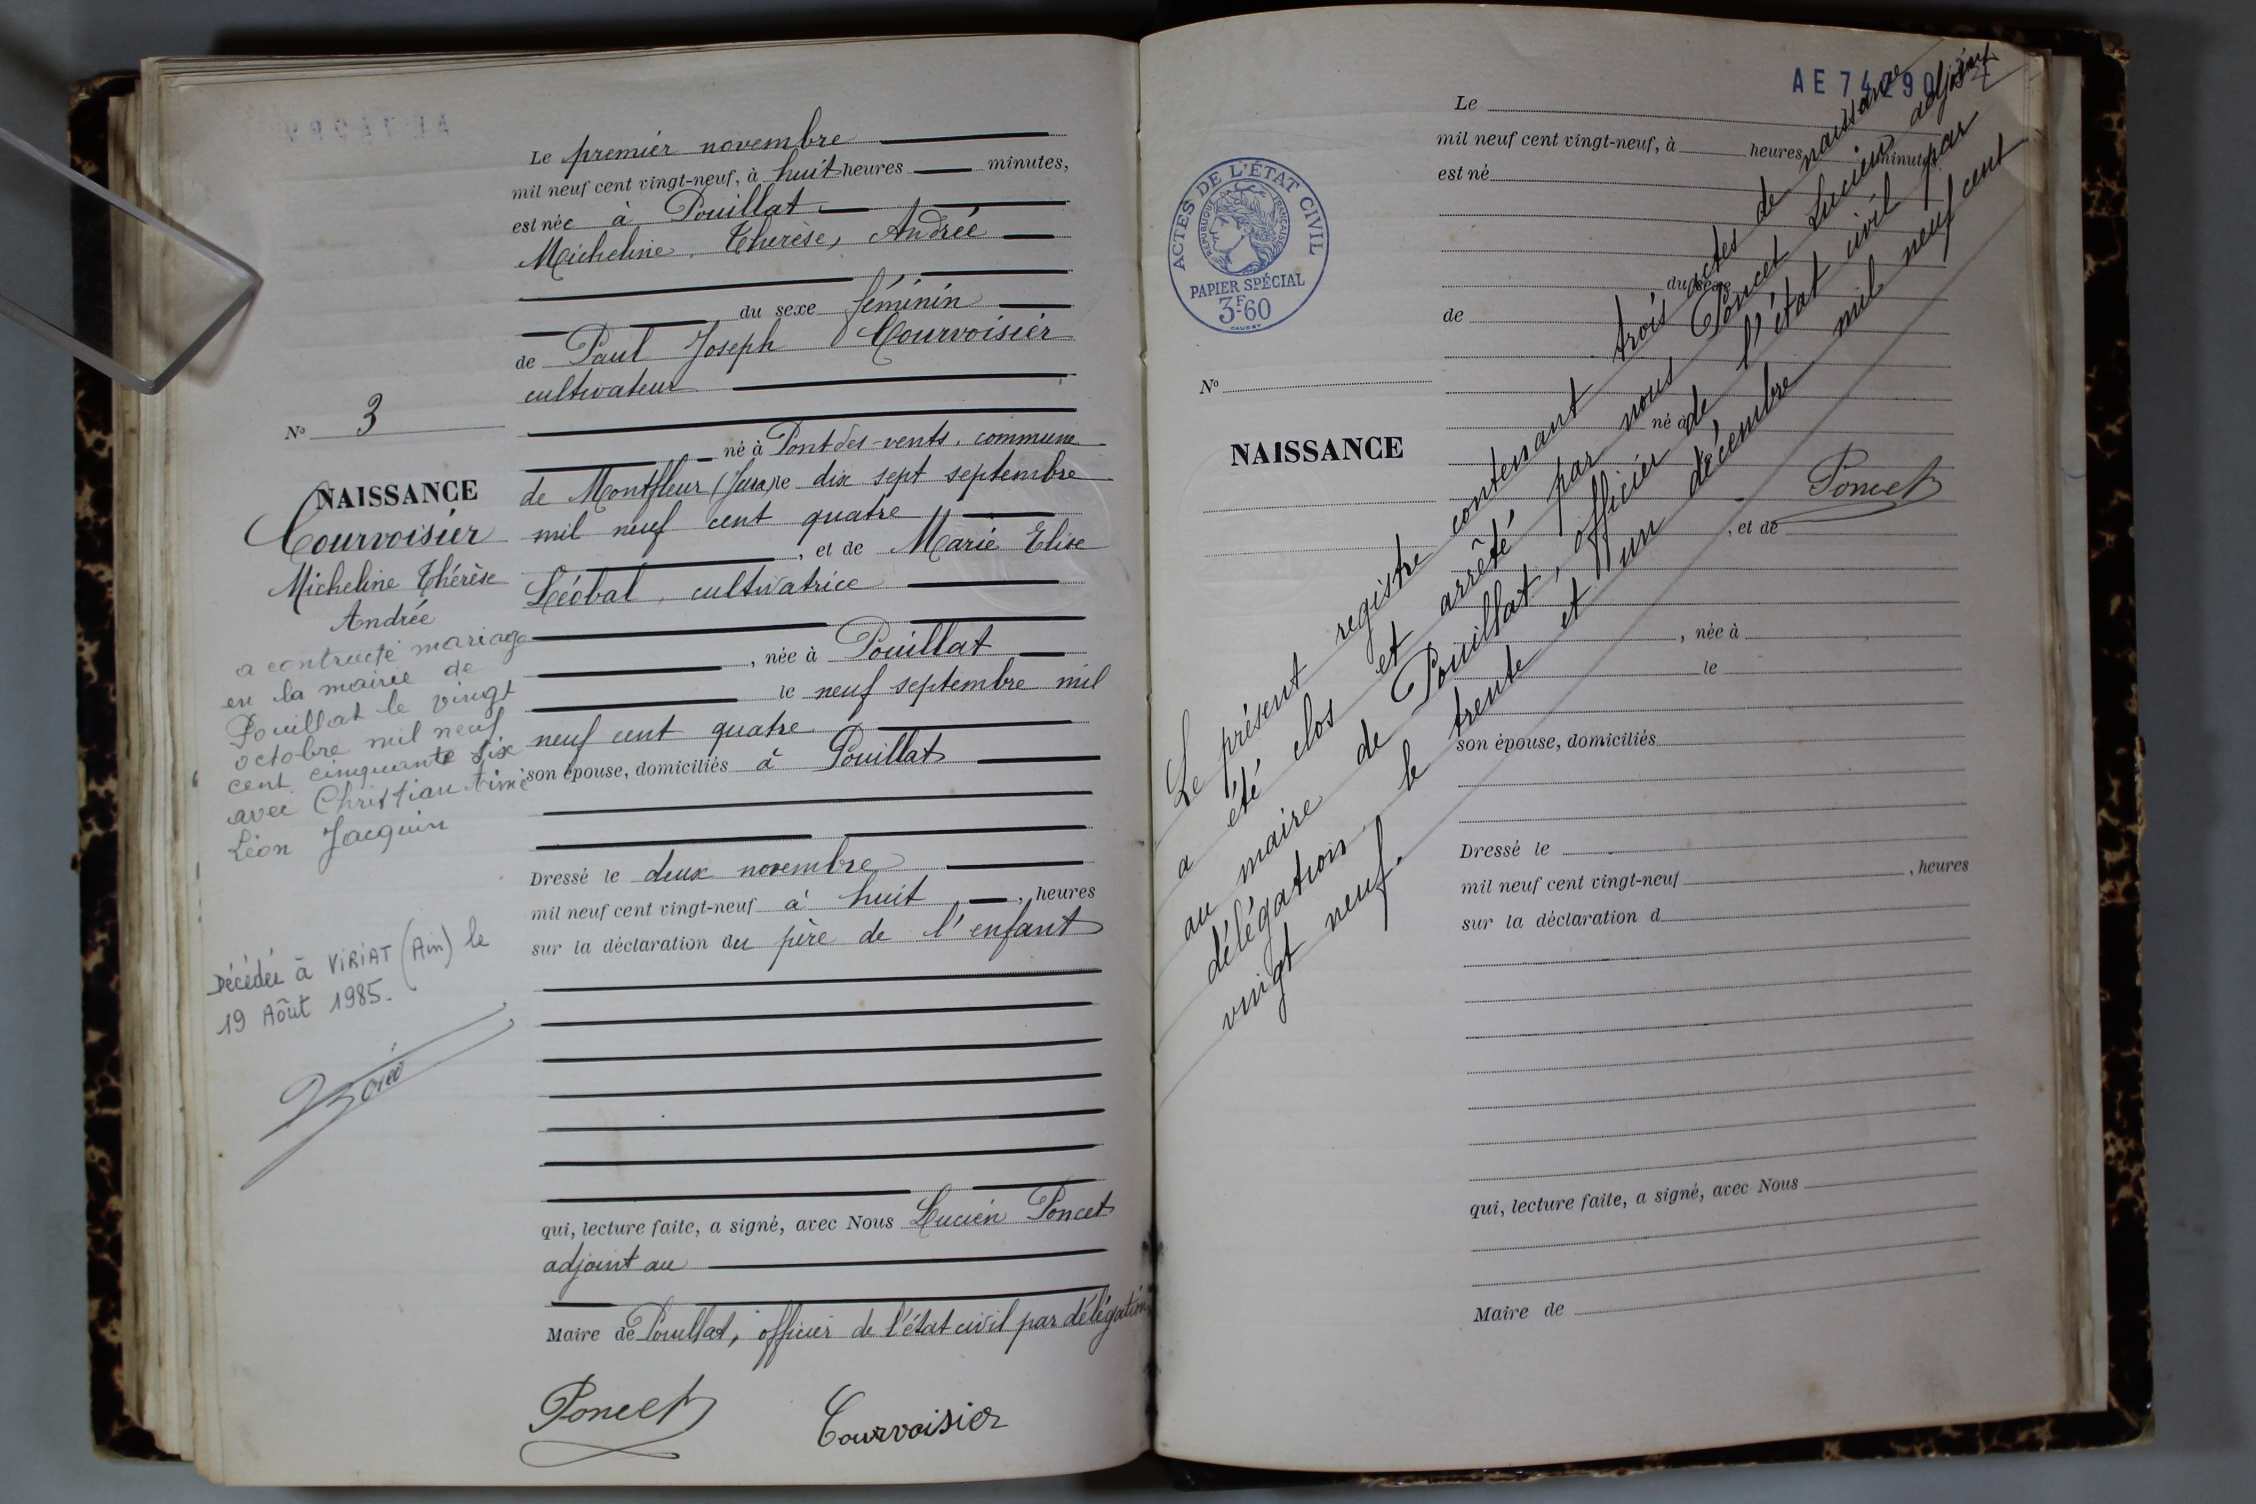 Le premier novembre
mil neuf cent vingt-neuf, à huit heures minutes,
est née à Pouillat
Micheline, Therèse, Andrée
du sexe féminin
de Paul Joseph Courvoisier
cultivateur
né à Pont-des-vents, commune
de Montfleur (Jura) le dix sept septembre
mil neuf cent quatre
, et de Marie Elise
Léobal, cultivatrice
, née à Pouillat
le neuf septembre mil
neuf cent quatre
son épouse, domiciliés à Pouillat
Dressé le deux novembre
mil neuf cent vingt-neuf à huit , heures
sur la déclaration du père de l'enfant
qui, lecture faite, a signé, avec Nous Lucien Poncet
adjoint au
Maire de Pouillat, officier de l'état civil par délégation
Poncet
Courvoisier
No 3
NAISSANCE
Courvoisier
Micheline Thérèse
Andrée
a contracté mariage
en la mairie de
Pouillat le vingt
octobre mil neuf
cent cinquante six
avec Christian Aimé
Léon Jacquin
Décédée à VIRIAT (Ain) le
19 Août 1985.
AE 74290
ACTES DE L'ÉTAT CIVIL
RÉPUBLIQUE FRANÇAISE
PAPIER SPÉCIAL
3F60
No
NAISSANCE
Le
mil neuf cent vingt-neuf, à heures minutes,
est né
du sexe
de
né à
, et de
, née à
le
son épouse, domiciliés
Dressé le
mil neuf cent vingt-neuf , heures
sur la déclaration d
qui, lecture faite, a signé, avec Nous
Maire de
Le présent registre contenant trois actes de naissance
a été clos et arrêté par nous Poncet Lucien adjoint
au maire de Pouillat, officier de l'état civil par
délégation, le trente et un décembre mil neuf cent
vingt neuf.
Poncet